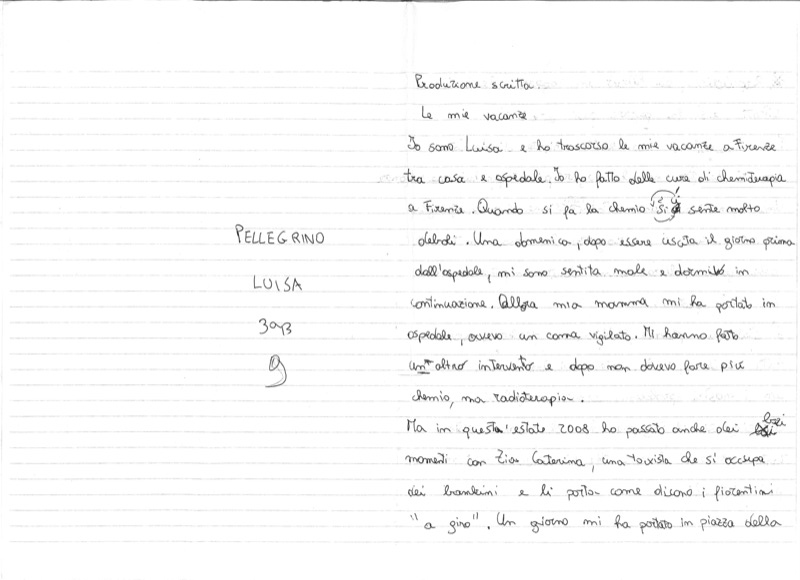 PELLEGRINO
LUISA
3aB
9
Produzione scritta
Le mie vacanze
Io sono Luisa e ho trascorso le mie vacanze a Firenze
tra casa e ospedale. Io ho fatto delle cure di chemioterapia
a Firenze. Quando si fa la chemio si sente molto
deboli. Una domenica, dopo essere uscita il giorno prima
dall'ospedale, mi sono sentita male e dormivo in
continuazione. Allora mia mamma mi ha portato in
ospedale, avevo un coma vigilato. Mi hanno fatto
un altro intervento e dopo non dovevo fare più
chemio, ma radioterapia.
Ma in questa estate 2008 ho passato anche dei
momenti con Zia Caterina, una taxista che si occupa
dei bambini e li porta come dicono i fiorentini
"a giro". Un giorno mi ha portato in piazza della